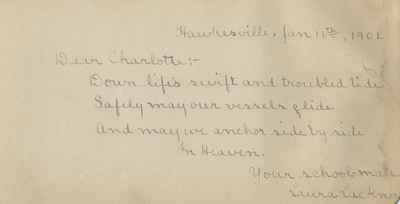 Hawkesville, Jan 11th, 1901
Dear Charlotte:-
Down life's swift and troubled tide
Safely may our vessels glide
And may we anchor side by side
In Heaven.
Your schoolmate
Laura